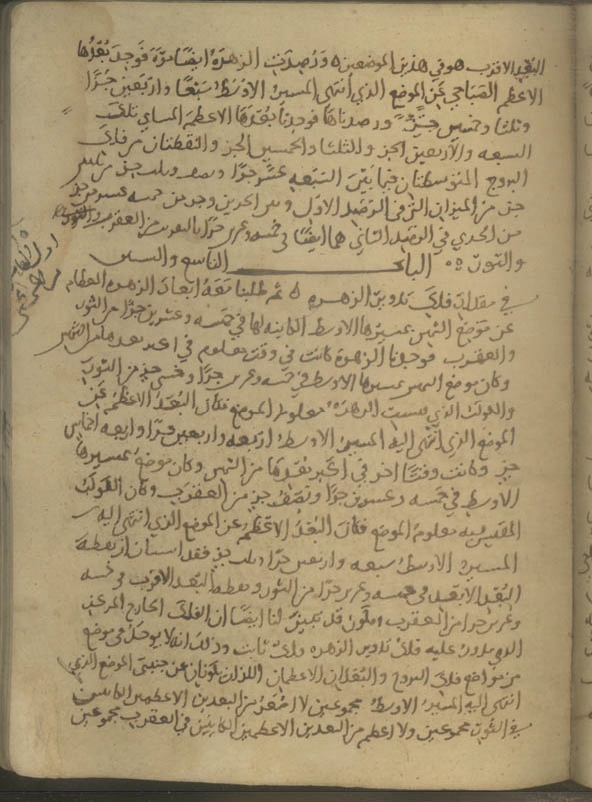 البعد الاقرب هو في هذين الموضعين ورصدت الزهرة ايضا مرة فوجد بعدها
الاعظم الصباحي عن الموضع الذي انتهى المسير الاوسط سبعا واربعين جزًا
وثلثا وخمس جزء ورصدناها فوجدنا بعدها الاعظم المساي تلك
السبعه والاربعين الجز والثلثا والخمس الجز والنقطتان من فلك
البروج المتوسطتان فيما بين التسعه عشر جزًا
جز من الميزان التي في الرصد الاول الجدي وجز من خمسه
من الجدي في الرصد الثاني هما ايضا في خمسه وعشرين جزا بالتقريب من العقرب
والثور الباب التاسع والستين
في مقدار فلك تدوير الزهره ثم طلبنا معرفة ابعاد الزهره العظام
عن موضع الشمس بمسيرها الاوسط الكاينه لها في خمسه وعشرين جزًا من الثور
والعقرب فوجدنا الزهرة كانت في وقت معلوم في اعظم بعدها من الشمس
وكان موضع الشمس بمسيرها الاوسط في خمسه وعشرين جزًا وخمسي جز من الثور
والكوكب الذي قيست الزهرة معلوم الموضع فكان البعد الاعظم عن
الموضع الذي انتهى اليه المسير الاوسط اربعه واربعين جزًا واربعه اخماس
جز وكانت وقتًا اخر في اكبر بعدها من الشمس وكان موضع بمسيرها
الاوسط في خمسه وعشرين جزًا ونصف جز من العقرب وكان الكوكب
المقيس به معلوم الموضع فكان البعد الاعظم عن الموضع الذي انتهى اليه
المسير الاوسط سبعه واربعين جزًا وثلث جز فقد استبان ان نقطة
البعد الابعد في خمسه وعشرين جزا من الثور ونقطة البعد الاقرب في خمسه
وعشرين جزا من العقرب ويكون قد تبين لنا ايضًا ان الفلك الخارج المركز
الذي يدور عليه فلك تدوير الزهره فلك ثابت وذلك انه لا يوجد في موضع
من مواضع فلك البروج والبعدان الاعظمان اللذان يكونان عن جنبتي الموضع الذي
انتهى اليه المسير الاوسط مجموعين لا اصغر من البعدين الاعظمين الكاينين
في الثور مجموعين ولا اعظم من البعدين الاعظمين الكاينين في العقرب مجموعين